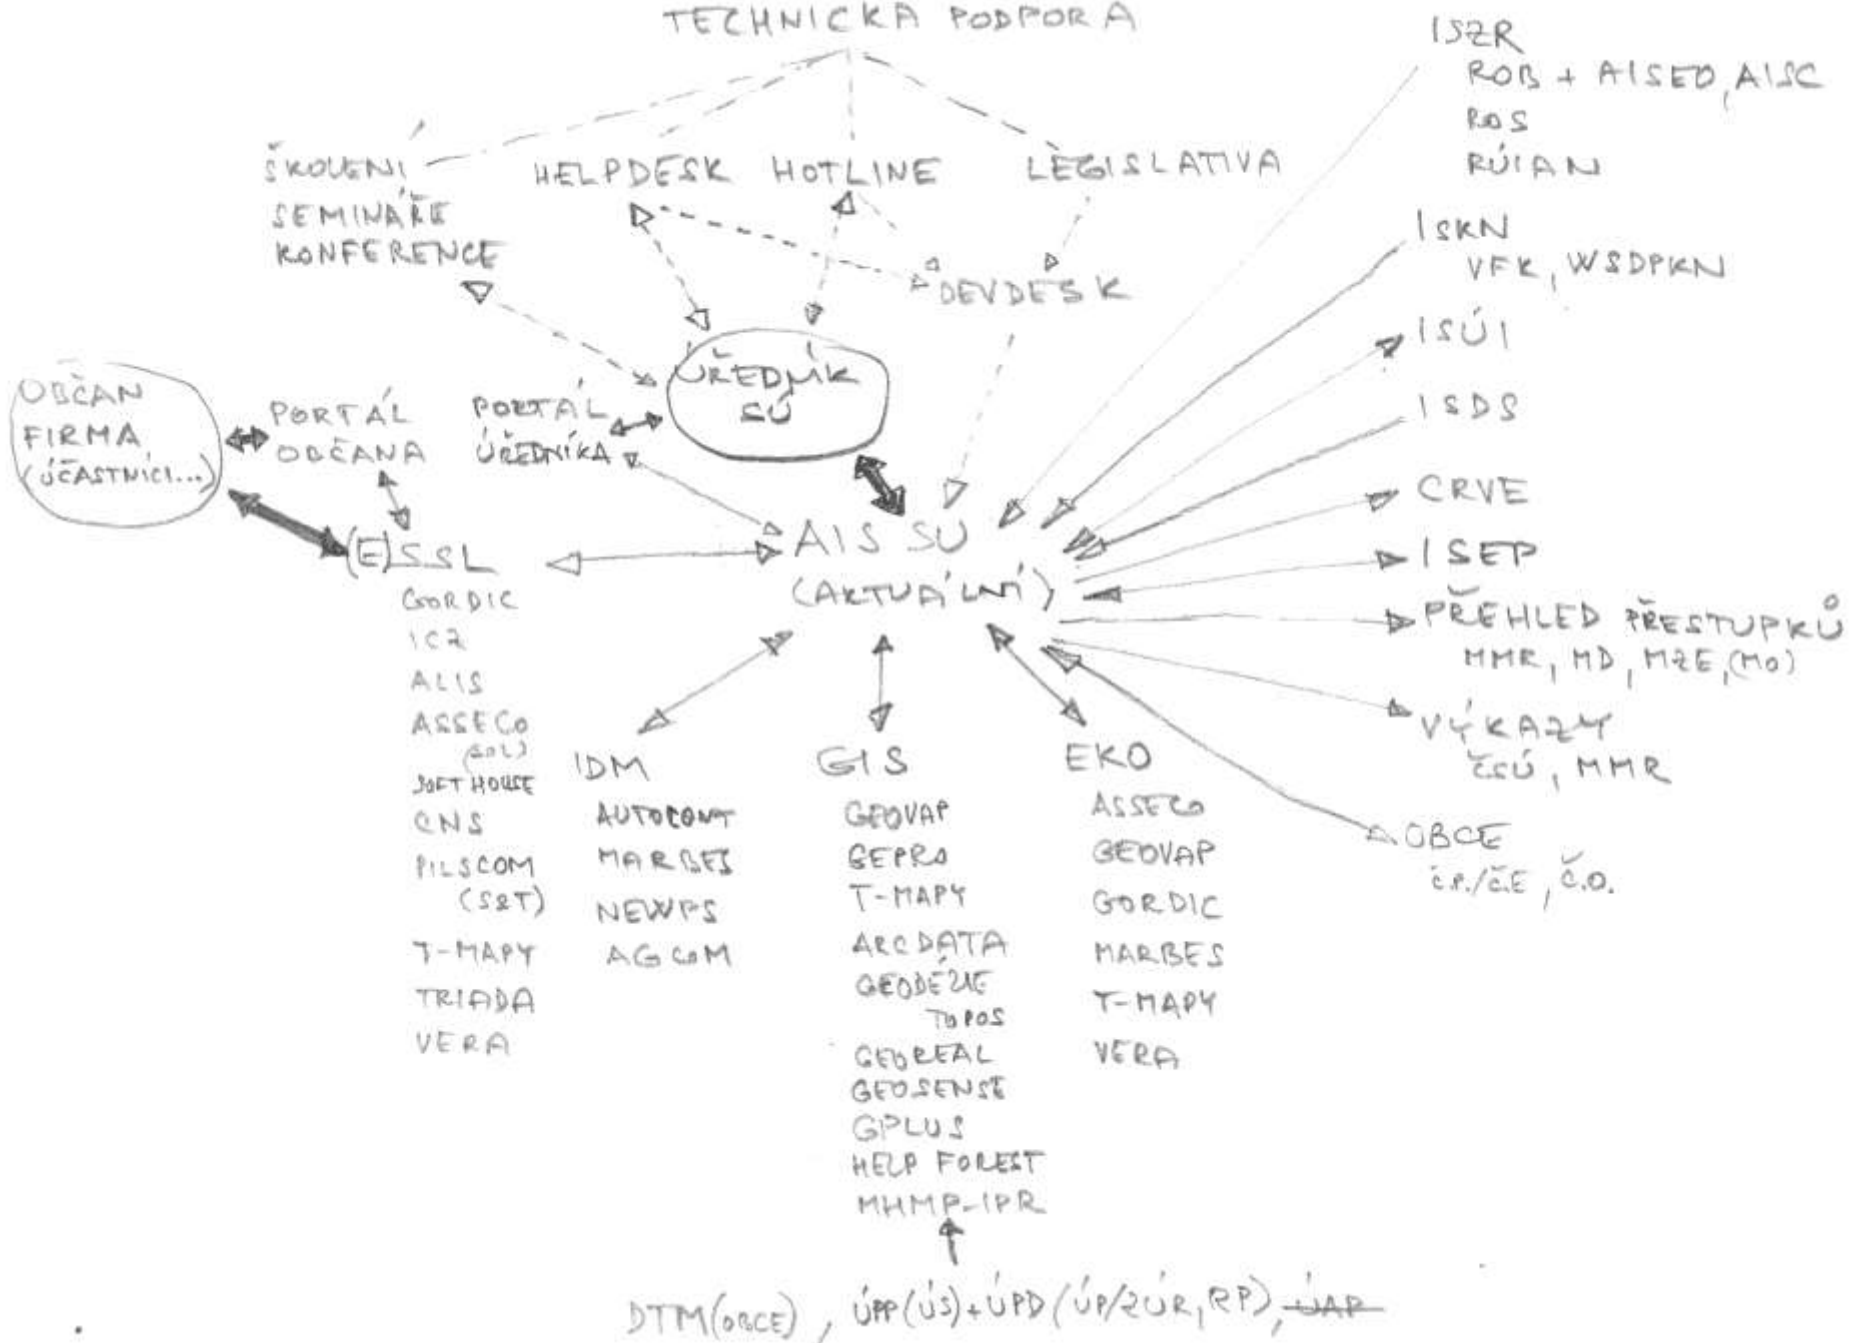 TECHNICKÁ PODPORA
ŠKOLENÍ
SEMINÁŘE
KONFERENCE
HELPDESK
HOTLINE
LEGISLATIVA
DEVDESK
OBČAN
FIRMA
(ÚČASTNÍCI...)
PORTÁL
OBČANA
PORTÁL
ÚŘEDNÍKA
ÚŘEDNÍK
SÚ
AIS SÚ
(AKTUÁLNÍ)
(E)SSL
GORDIC
ICZ
ALIS
ASSECO
SOFT HOUSE
CNS
PILSCOM
(S&T)
T-MAPY
TRIADA
VERA
IDM
AUTOCONT
MARBES
NEWPS
AGCOM
GIS
GEOVAP
GEPRO
T-MAPY
ARCDATA
GEODÉZIE
TOPOS
GEOREAL
GEOSENSE
GPLUS
HELP FOREST
MHMP-IPR
EKO
ASSECO
GEOVAP
GORDIC
MARBES
T-MAPY
VERA
ISZR
ROB + AISEO, AISC
ROS
RÚIAN
ISKN
VFK, WSDPKN
ISÚI
ISDS
CRVE
ISEP
PŘEHLED PŘESTUPKŮ
MMR, MD, MZE, (MO)
VÝKAZY
ČSÚ, MMR
OBCE
Č.P./Č.E, Č.O.
DTM(OBCE), ÚPP(ÚS)+ÚPD(ÚP/ZÚR, RP), ÚAP